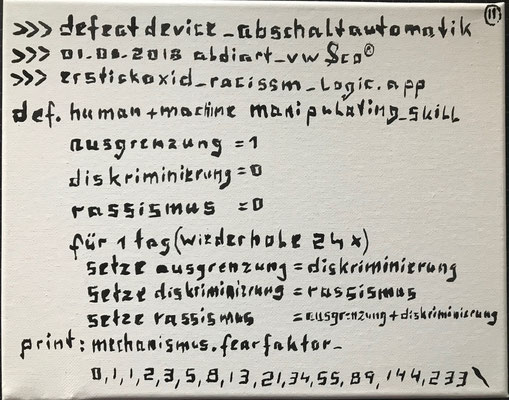 11)
>>> defeatdevice_abschaltautomatik
>>> 01.08.2018 aldiart_vw $co®
>>> erstickoxid_racissm_logic.app
def. human+machine manipulating_skill
ausgrenzung = 1
diskriminierung = 0
rassismus = 0
für 1 tag (wiederhole 24x)
setze ausgrenzung = diskriminierung
setze diskriminizrung = rassismus
setze rassismus = ausgrenzung + diskriminisrung
print: mechanismus.fearfaktor_
0,1,1,2,3,5,8,13,21,34,55,89,144,233\